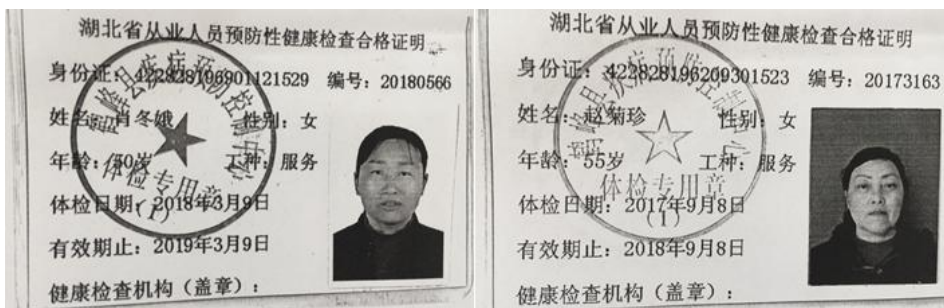 湖北省从业人员预防性健康检查合格证明
身份证：422828196901121529 编号：20180566
姓名：肖冬娥 性别：女
年龄：50岁 工种：服务
体检日期：2018年3月9日
有效期止：2019年3月9日
健康检查机构（盖章）：
鹤峰县疾病预防控制中心
体检专用章
(1)
湖北省从业人员预防性健康检查合格证明
身份证：422828196209301523 编号：20173163
姓名：赵菊珍 性别：女
年龄：55岁 工种：服务
体检日期：2017年9月8日
有效期止：2018年9月8日
健康检查机构（盖章）：
鹤峰县疾病预防控制中心
体检专用章
(1)